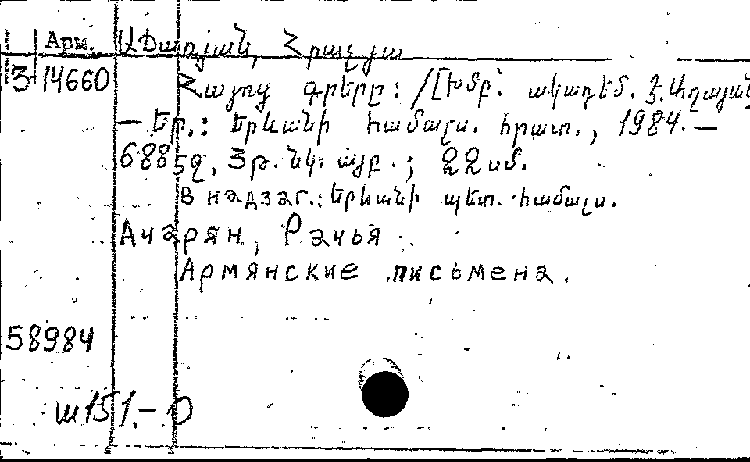 Арм. Աճառյան, Հրաչյա
3 14660 Հայոց գրերը: /[Խմբ՝ ակադեմ. Է. Աղայան
— Եր.: Երևանի համալս. հրատ., 1984. —
688 էջ, 3թ. նկ. այբ.; 22 սմ.
В надзаг.: Երևանի պետ. համալս.
Ачарян, Рачья
Армянские письмена.
58984
ա151.-0